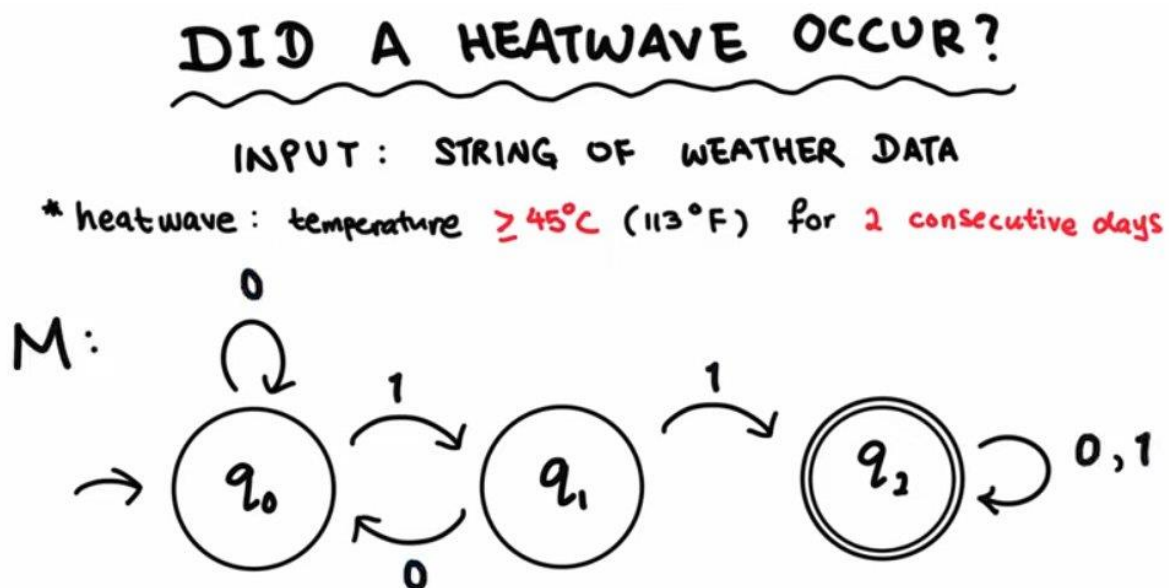 DID A HEATWAVE OCCUR?
INPUT: STRING OF WEATHER DATA
* heatwave: temperature ≥45°C (113°F) for 2 consecutive days
0
M:
1
1
q₀
q₁
q₂
0,1
0